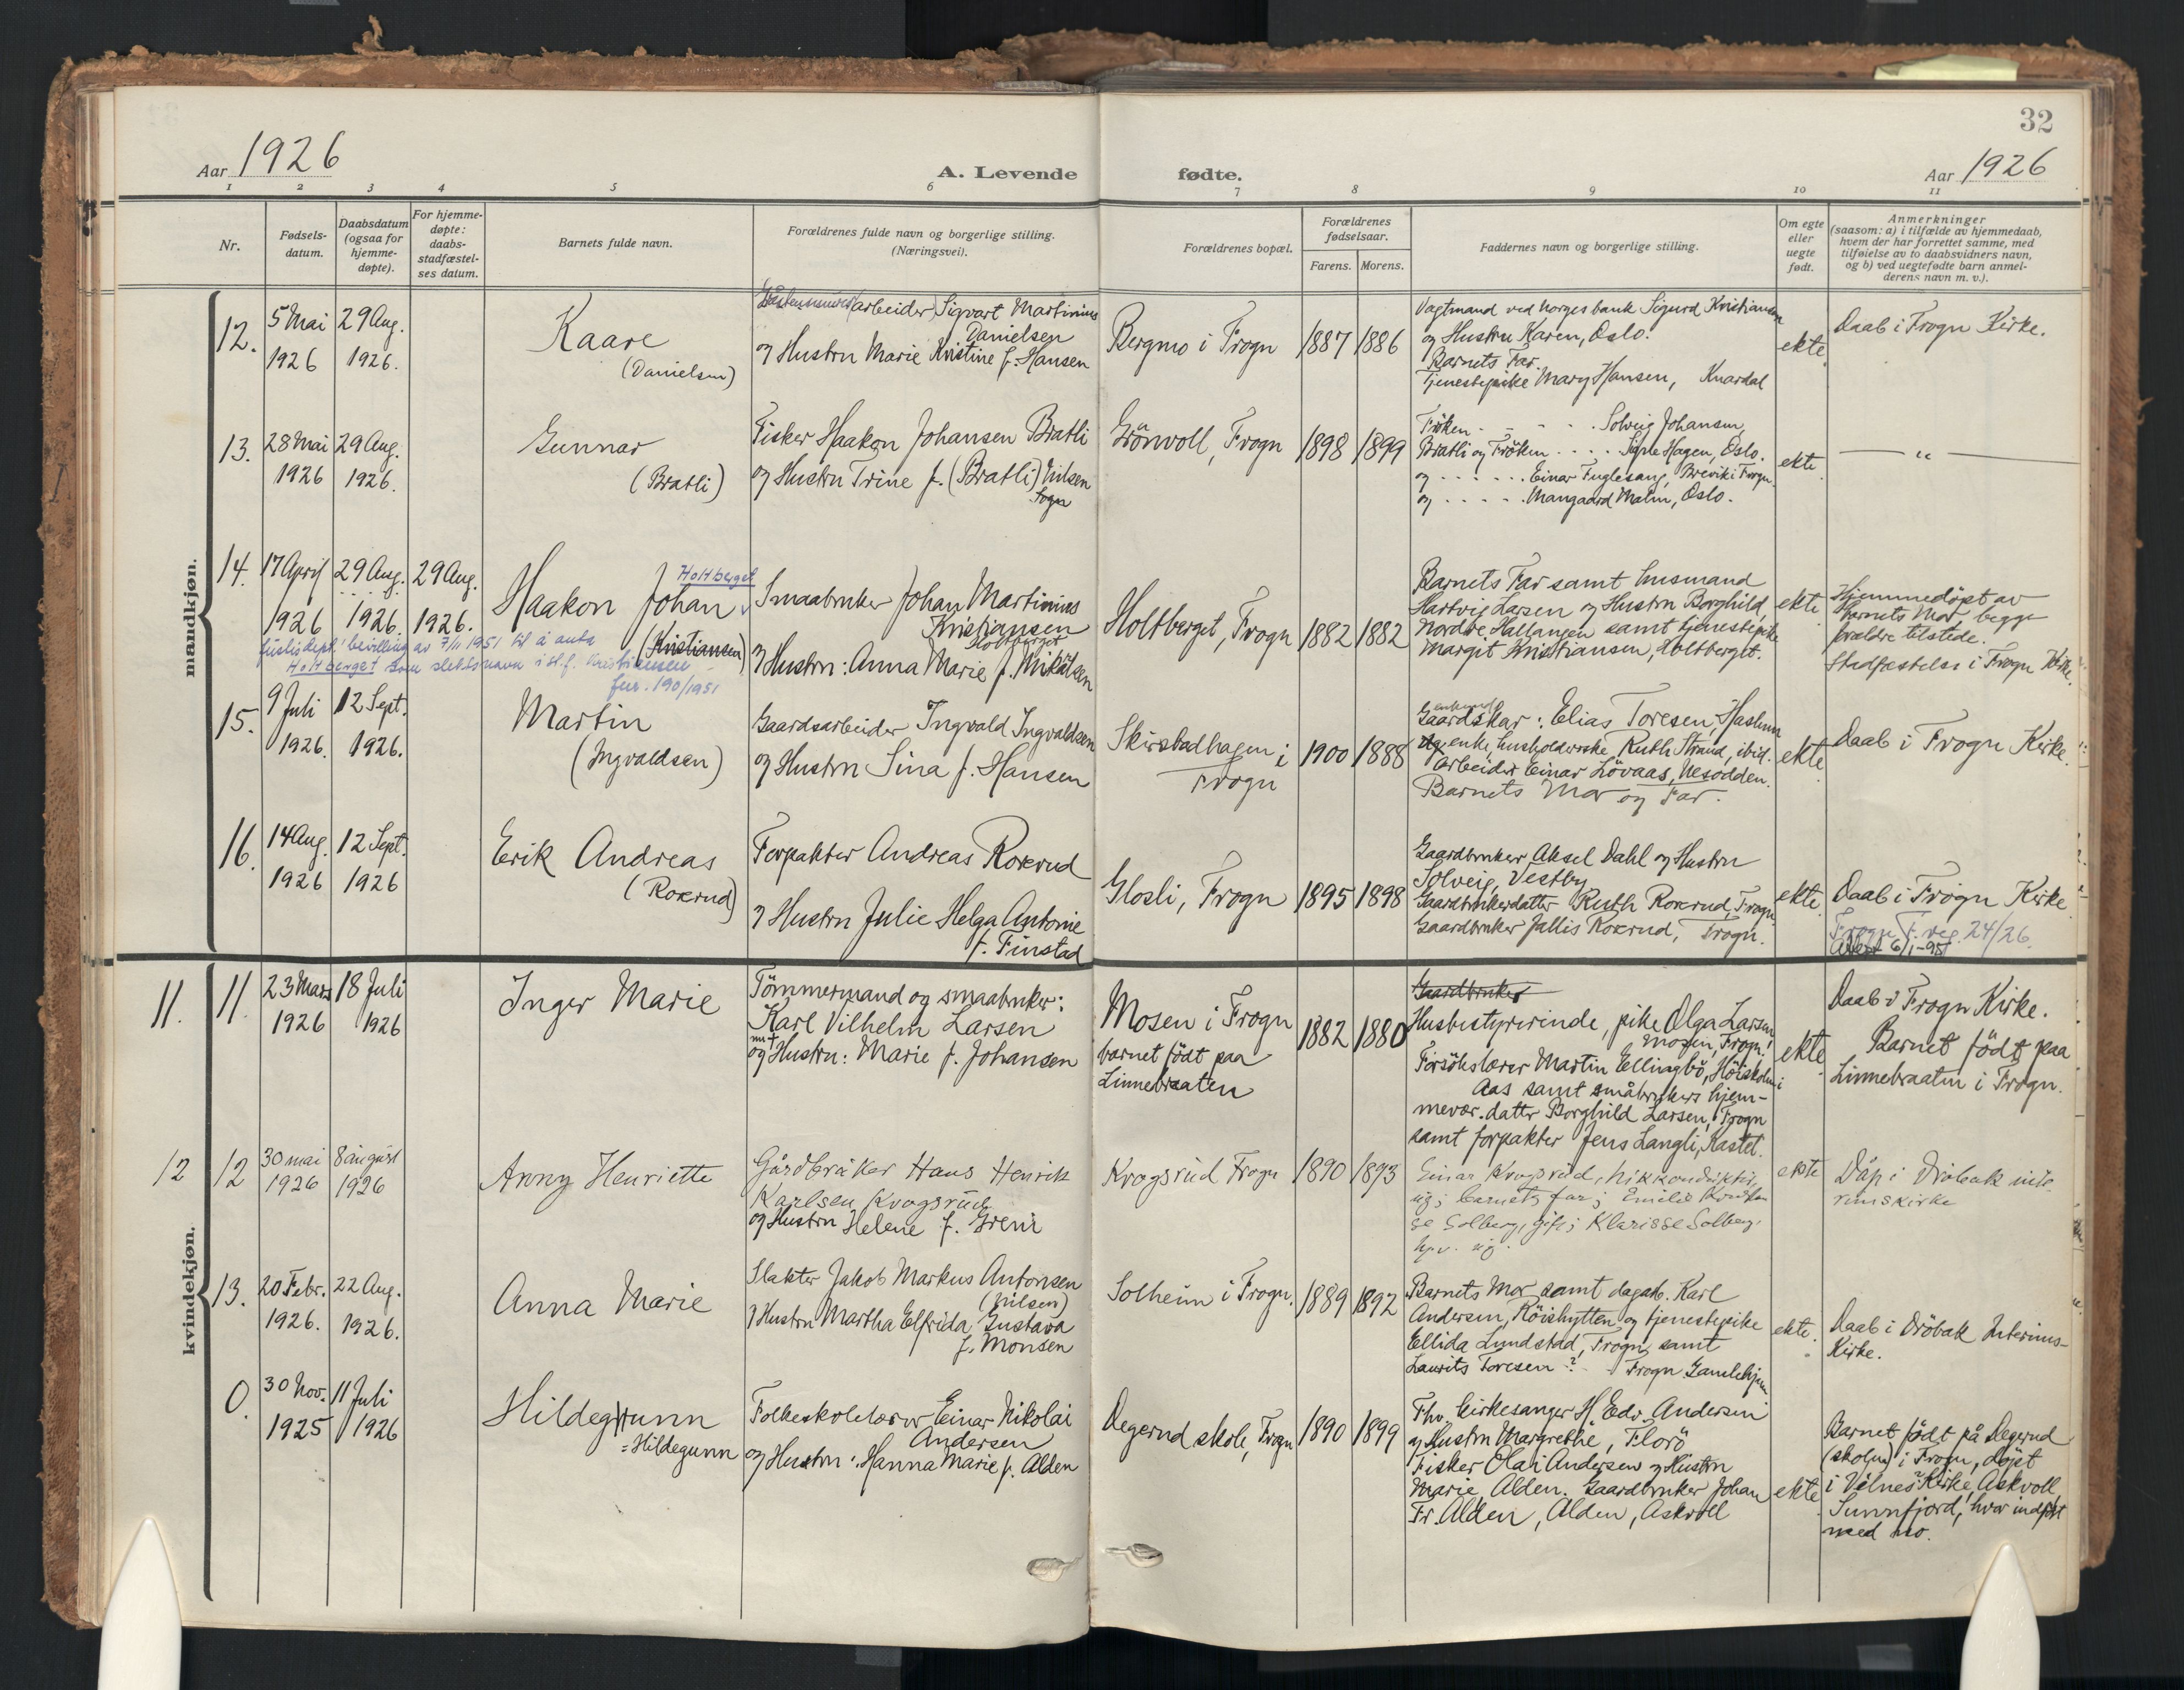 32
Aar 1926
A. Levende
fødte.
Aar 1926
1 2 3 4 5 6 7 8 9 10 11
Nr.
Fødsels-
datum.
Daabsdatum
(ogsaa for
hjemme-
døpte).
For hjemme-
døpte:
daabs-
stadfæstel-
ses datum.
Barnets fulde navn.
Forældrenes fulde navn og borgerlige stilling.
(Næringsvei).
Forældrenes bopæl.
Forældrenes
fødselsaar.
Farens. Morens.
Faddernes navn og borgerlige stilling.
Om egte
eller
uegte
født.
Anmerkninger
(saasom: a) i tilfælde av hjemmedaab,
hvem der har forrettet samme, med
tilføielse av to daabsvidners navn,
og b) ved uegtefødte barn anmel-
derens navn m. v.).
mandkjøn.
12.
5 Mai
1926
29 Aug.
1926.
Kaare
(Danielsen)
arbeider Sigvart Martinius
Danielsen
og Hustru Marie Kristine f. Hansen
Bergmo i Frogn
1887 1886
Vagtmand ved Norges bank Sigurd Kristiansen
og Hustru Karen, Oslo.
Barnets Far.
Tjenestepike Mary Hansen, Knardal
ekte
Daab i Frogn Kirke.
13.
28 Mai
1926
29 Aug.
1926.
Gunnar
(Bratli)
Fisker Haakon Johansen Bratli
og Hustru Trine f. (Bratli) Nilsen
Sogn
Grönvoll, Frogn
1898 1899
Fröken - - - - . Solveig Johansen,
Bratli og Fröken . . . . Hagen, Oslo.
og . . . . . . Einar Fuglesang, Brevik i Frogn
og . . . . . Mangaard Malm, Oslo.
ekte
— " —
14.
17 April
1926
29 Aug.
1926.
29 Aug.
1926.
Holtberget
Haakon Johan
(Kristiansen)
Justisdept' bevilling av 7/11 1951 til å anta
Holtberget som slektsnavn i st. f. Kristiansen
jnr. 190/1951
Smaabruker Johan Martinius
Kristiansen
Holtberget
og Hustru: Anna Marie f. Mikalsen
Holtberget, Frogn
1882 1882
Barnets Far samt husmand
Hartvig Larsen og Hustru Borghild,
Nordre Hallangen samt tjenestepike
Margit Kristiansen, Holtberget.
ekte
Hjemmedöpt av
barnets Mor, begge
forældre tilstede.
Stadfæstelse i Frogn Kirke.
15.
9 Juli
1926.
12 Sept.
1926.
Martin
(Ingvaldsen)
Gaardsarbeider Ingvald Ingvaldsen
og Hustru Sina f. Hansen
Skirstadhagen i
Frogn
1900 1888
enkemd
Gaardskar: Elias Toresen, Haslum
og enke, husholderske Ruth Strand, ibid.
Arbeider Einar Lövaas, Nesodden.
Barnets Mor og Far.
ekte
Daab i Frogn Kirke.
16.
14 Aug.
1926
12 Sept.
1926
Erik Andreas
(Rokrud)
Forpakter Andreas Rokrud
og Hustru Julie Helga Antonie
f. Finstad
Glosli, Frogn
1895 1898
Gaardbruker Aksel Dahl og Hustru
Solveig, Vestby
Gaardbrukerdatter Ruth Rokrud, Frogn
Gaardbruker Jallis Rokrud, Frogn.
ekte
Daab i Frogn Kirke
Frogn F. reg. 24/26.
kvindekjøn.
11. 11.
23 Mars
1926
18 Juli
1926
Inger Marie
Tömmermand og smaabruker:
Karl Vilhelm Larsen
og Hustru: Marie f. Johansen
Mosen i Frogn
barnet födt paa
Linnebraaten
1882 1880
Gaardbruker
Husbestyrerinde, pike Olga Larsen
Mosen, Frogn!
Forsökslærer Martin Ellingbö, Höiskolen i
Aas samt småbrukers hjem-
mevær. datter Borghild Larsen, Frogn
samt forpakter Jens Langli, Kastel.
ekte
Daab i Frogn Kirke.
Barnet födt paa
Linnebraaten i Frogn.
12 12
30 mai
1926
8 august
1926
Anny Henriette
Gårdbruker Hans Henrik
Karlsen Krogsrud
og Hustru Helene f. Grenir
Krogsrud Frogn
1890 1893
Einar Krogsrud,
ug; barnets far; Emilie
Solberg, gift; Klarisse Solberg,
ug.
ekte
Dåp i Drøbak inte-
rimskirke
13.
20 Febr.
1926.
22 Aug.
1926.
Anna Marie
Slakter Jakob Markus Antonsen
(Nilsen)
og Hustru Martha Elfrida Gustava
f. Monsen
Solheim i Frogn.
1889 1892
Barnets Mor samt dagarb. Karl
Andersen, Röishytten og tjenestepike
Ellida Lundstad, Frogn, samt
Laurits Toresen ? - Frogn Gamlehjem
ekte.
Daab i Dröbak Interims-
Kirke.
0.
30 Nov.
1925
11 Juli
1926
Hildegunn
=Hildegunn
Folkeskolelærer Einar Nikolai
Andersen
og Hustru: Hanna Marie f. Alden
Degerud skole, Frogn
1890 1899
Fhv. kirkesanger H. Edv. Andersen
og Hustru Margrethe, Florö
Fisker Olai Andersen og Hustru
Marie Alden. Gaardbruker Johan
Fr. Alden, Alden, Askvoll
ekte
Barnet födt på Degerud
(skolen) i Frogn, döpt
i Vilnes Kirke, Askvoll
Sunnfjord, hvor indfört
med no.